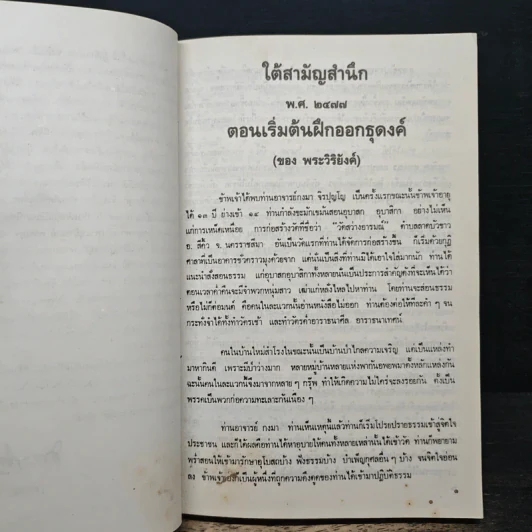 ใต้สามัญสำนึก
พ.ศ. ๒๔๗๗
ตอนเริ่มต้นฝึกออกธุดงค์
(ของ พระวิริยังค์)
ข้าพเจ้าได้พบท่านอาจารย์กงมา จิรปุญโญ เป็นครั้งแรกขณะนั้นข้าพเจ้าอายุ
ได้ ๑๓ ปี ย่างเข้า ๑๔ ท่านกำลังขะมักเขม้นสอนอุบาสก อุบาสิกา อย่างไม่เห็น
แก่การเหน็ดเหนื่อย การก่อสร้างวัดที่ชื่อว่า "วัดสว่างอารมณ์" ตำบลลาดบัวขาว
อ. สีคิ้ว จ. นครราชสีมา อันเป็นวัดแรกที่ท่านได้จัดการก่อสร้างขึ้น ก็เริ่มด้วยกุฏิ
ศาลาที่เป็นอาคารชั่วคราวมุงด้วยจาก แต่นั่นเป็นสิ่งที่ท่านมิได้เอาใจใส่มากนัก ท่านได้
แนะนำสั่งสอนธรรม แก่อุบาสกอุบาสิกาทั้งหลายนั้นเป็นประการสำคัญดังที่จะเห็นได้ว่า
ตอนเวลาค่ำคืนจะมีจำพวกหนุ่มสาว เฒ่าแก่หลั่งไหลไปหาท่าน โดยท่านจะสอนธรรม
หรือไม่ก็ต่อมนต์ คือคนในละแวกนั้นอ่านหนังสือไม่ออก ท่านต้องต่อให้ทีละคำ ๆ จน
กระทั่งจำได้ทั้งทำวัตรเช้า และทำวัตรค่ำอาราธนาศีล อาราธนาเทศน์.
คนในบ้านใหม่สำโรงในขณะนั้นเป็นบ้านป่าไกลความเจริญ แต่เป็นแหล่งทำ
มาหากินดี เพราะมีป่าว่างมาก หลายหมู่บ้านหลายแห่งพากันอพยพมาตั้งหลักแหล่งกัน
ฉะนั้นคนในละแวกนี้จึงมาจากหลาย ๆ กรุ๊พ ทำให้เกิดความไม่ใคร่จะลงรอยกัน ตั้งเป็น
พรรคเป็นพวกก่อความทะเลาะกันเนือง ๆ
ท่านอาจารย์ กงมา ท่านเห็นเหตุนี้แล้วท่านก็เริ่มโปรยปรายธรรมเข้าสู่จิตใจ
ประชาชน และก็ได้ผลคือท่านได้หาอุบายให้คนทั้งหลายเหล่านั้นได้เข้าวัด ท่านก็พยายาม
พร่ำสอนให้เข้ามารักษาอุโบสถบ้าง ฟังธรรมบ้าง บำเพ็ญกุศลอื่น ๆ บ้าง จนจิตใจอ่อน
ลง ข้าพเจ้าเองก็เป็นผู้หนึ่งที่ถูกความดึงดูดของท่านได้เข้ามาปฏิบัติธรรม